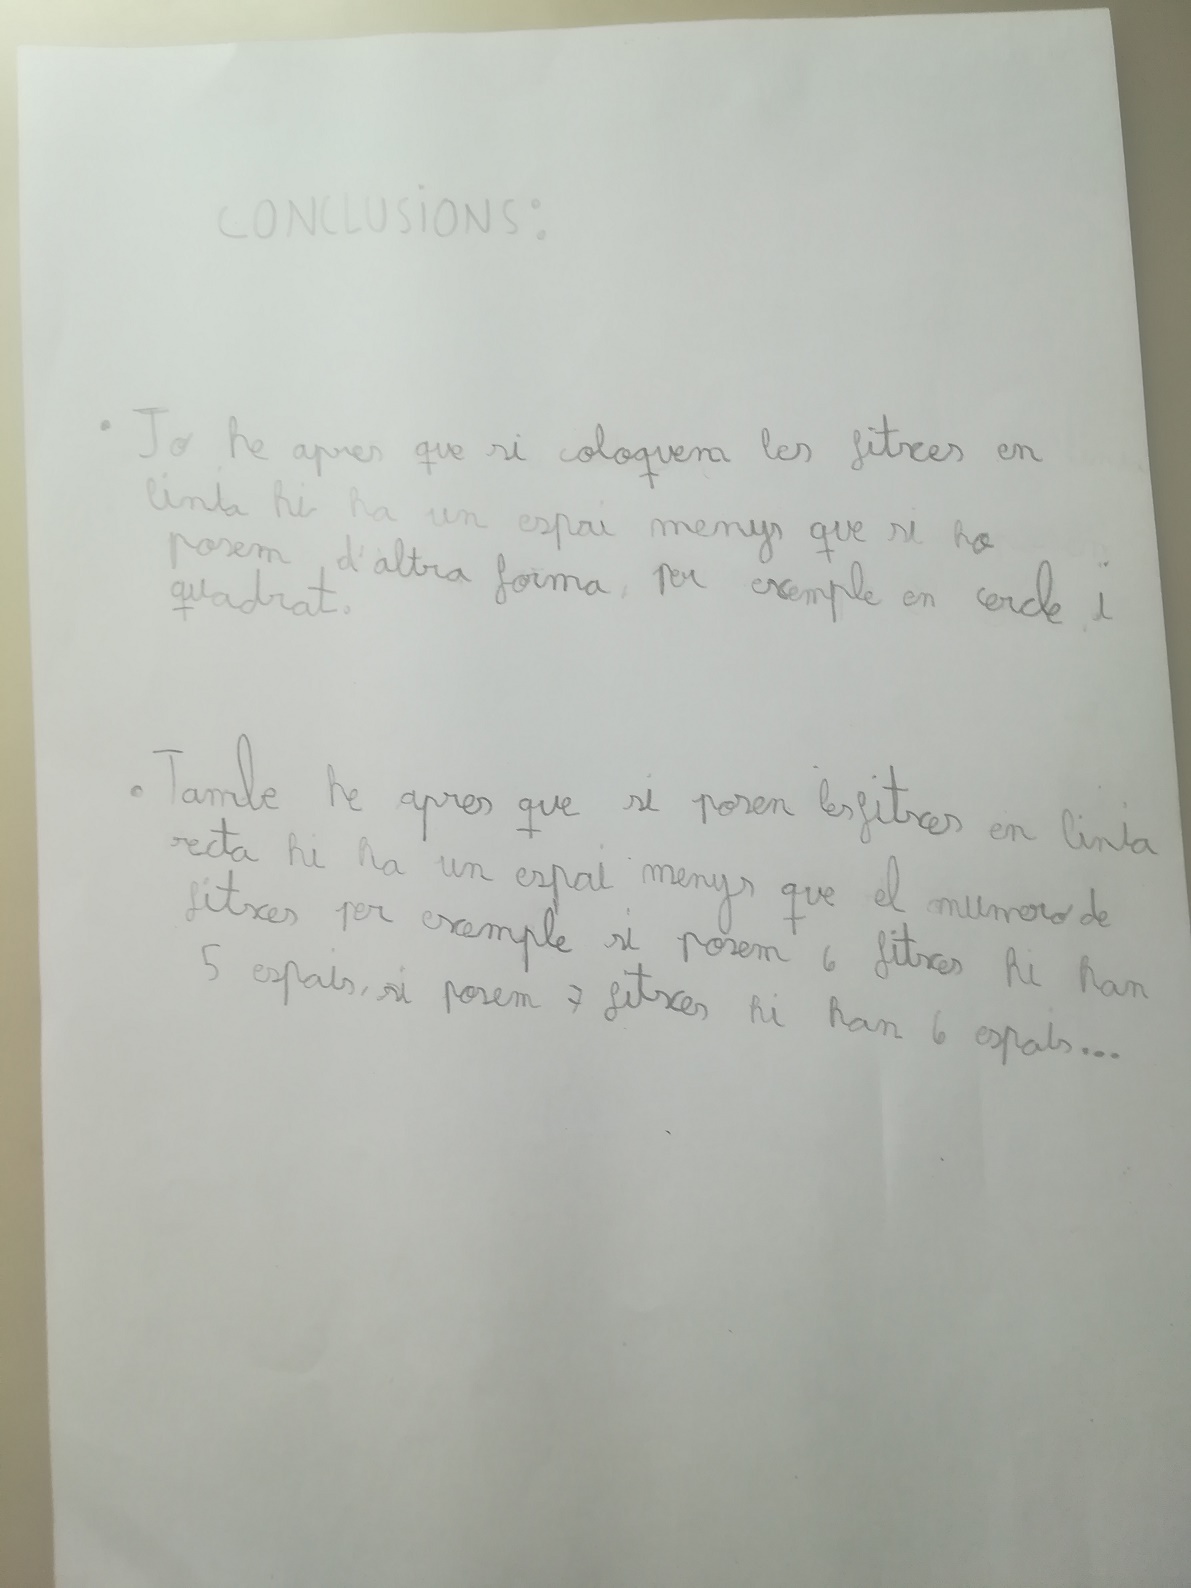 CONCLUSIONS:
• Jo he apres que si coloquem les fitxes en
linia hi ha un espai menys que si ho
posem d'altra forma, per exemple en cercle i
quadrat.
• Tambe he apres que si posen les fitxes en linia
recta hi ha un espai menys que el numero de
fitxes per exemple si posem 6 fitxes hi han
5 espais, si posem 7 fitxes hi han 6 espais...